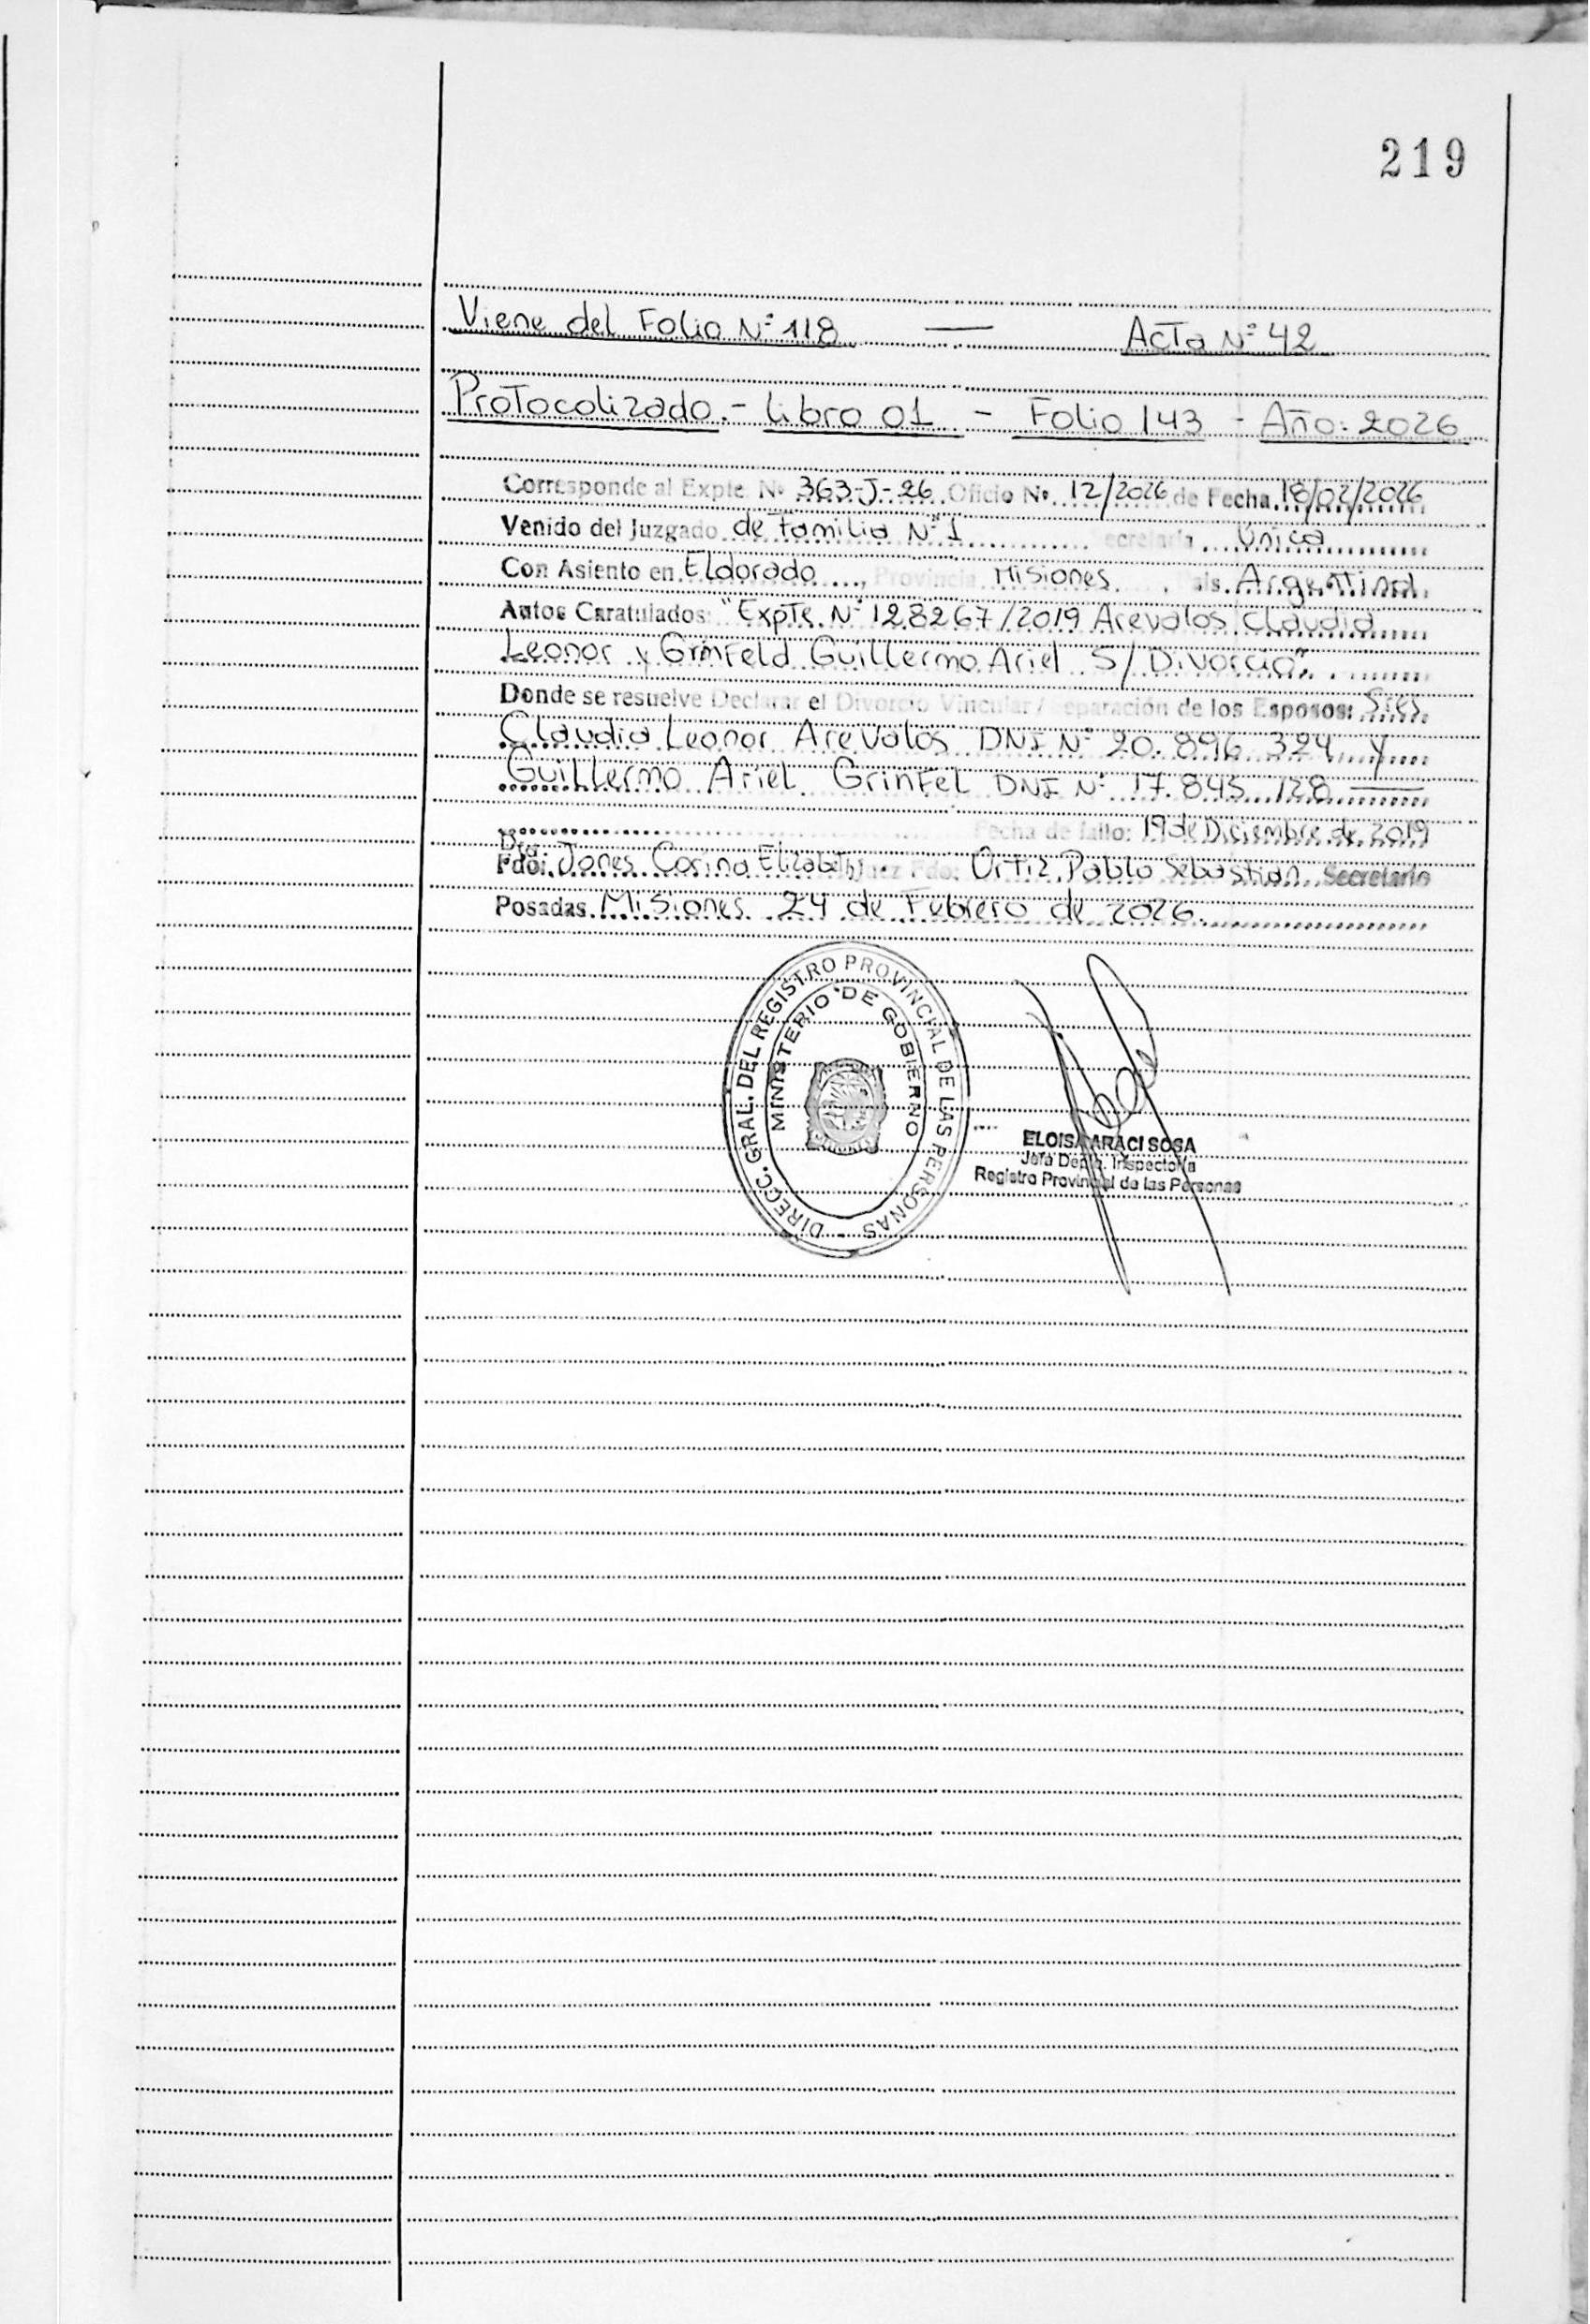 219
Viene del Folio N° 118 — Acta N° 42
Protocolizado.- Libro 01 - Folio 143 - Año: 2026
Corresponde al Expte. N° 363-J-26 Oficio N° 12/2026 de Fecha 18/02/2026
Venido del Juzgado de Familia N° 1 Secretaría Única
Con Asiento en Eldorado, Provincia Misiones, País Argentina.
Autos Caratulados: "Expte. N° 128267/2019 Arevalos Claudia
Leonor y Grinfeld Guillermo Ariel S/ Divorcio".
Donde se resuelve Declarar el Divorcio Vincular / Separación de los Esposos: Sres
Claudia Leonor Arevalos DNI N° 20.896.324 y
Guillermo Ariel Grinfel DNI N° 17.845.128 —
Fecha de fallo: 19 de Diciembre de 2019
Dra.
Fdo: Jones Corina Elizabeth Juez Fdo: Ortiz Pablo Sebastian Secretario
Posadas Misiones 24 de Febrero de 2026.
DIRECC. GRAL. DEL REGISTRO PROVINCIAL DE LAS PERSONAS
MINISTERIO DE GOBIERNO
ELOISA ARACI SOSA
Jefa Depto. Inspectoría
Registro Provincial de las Personas